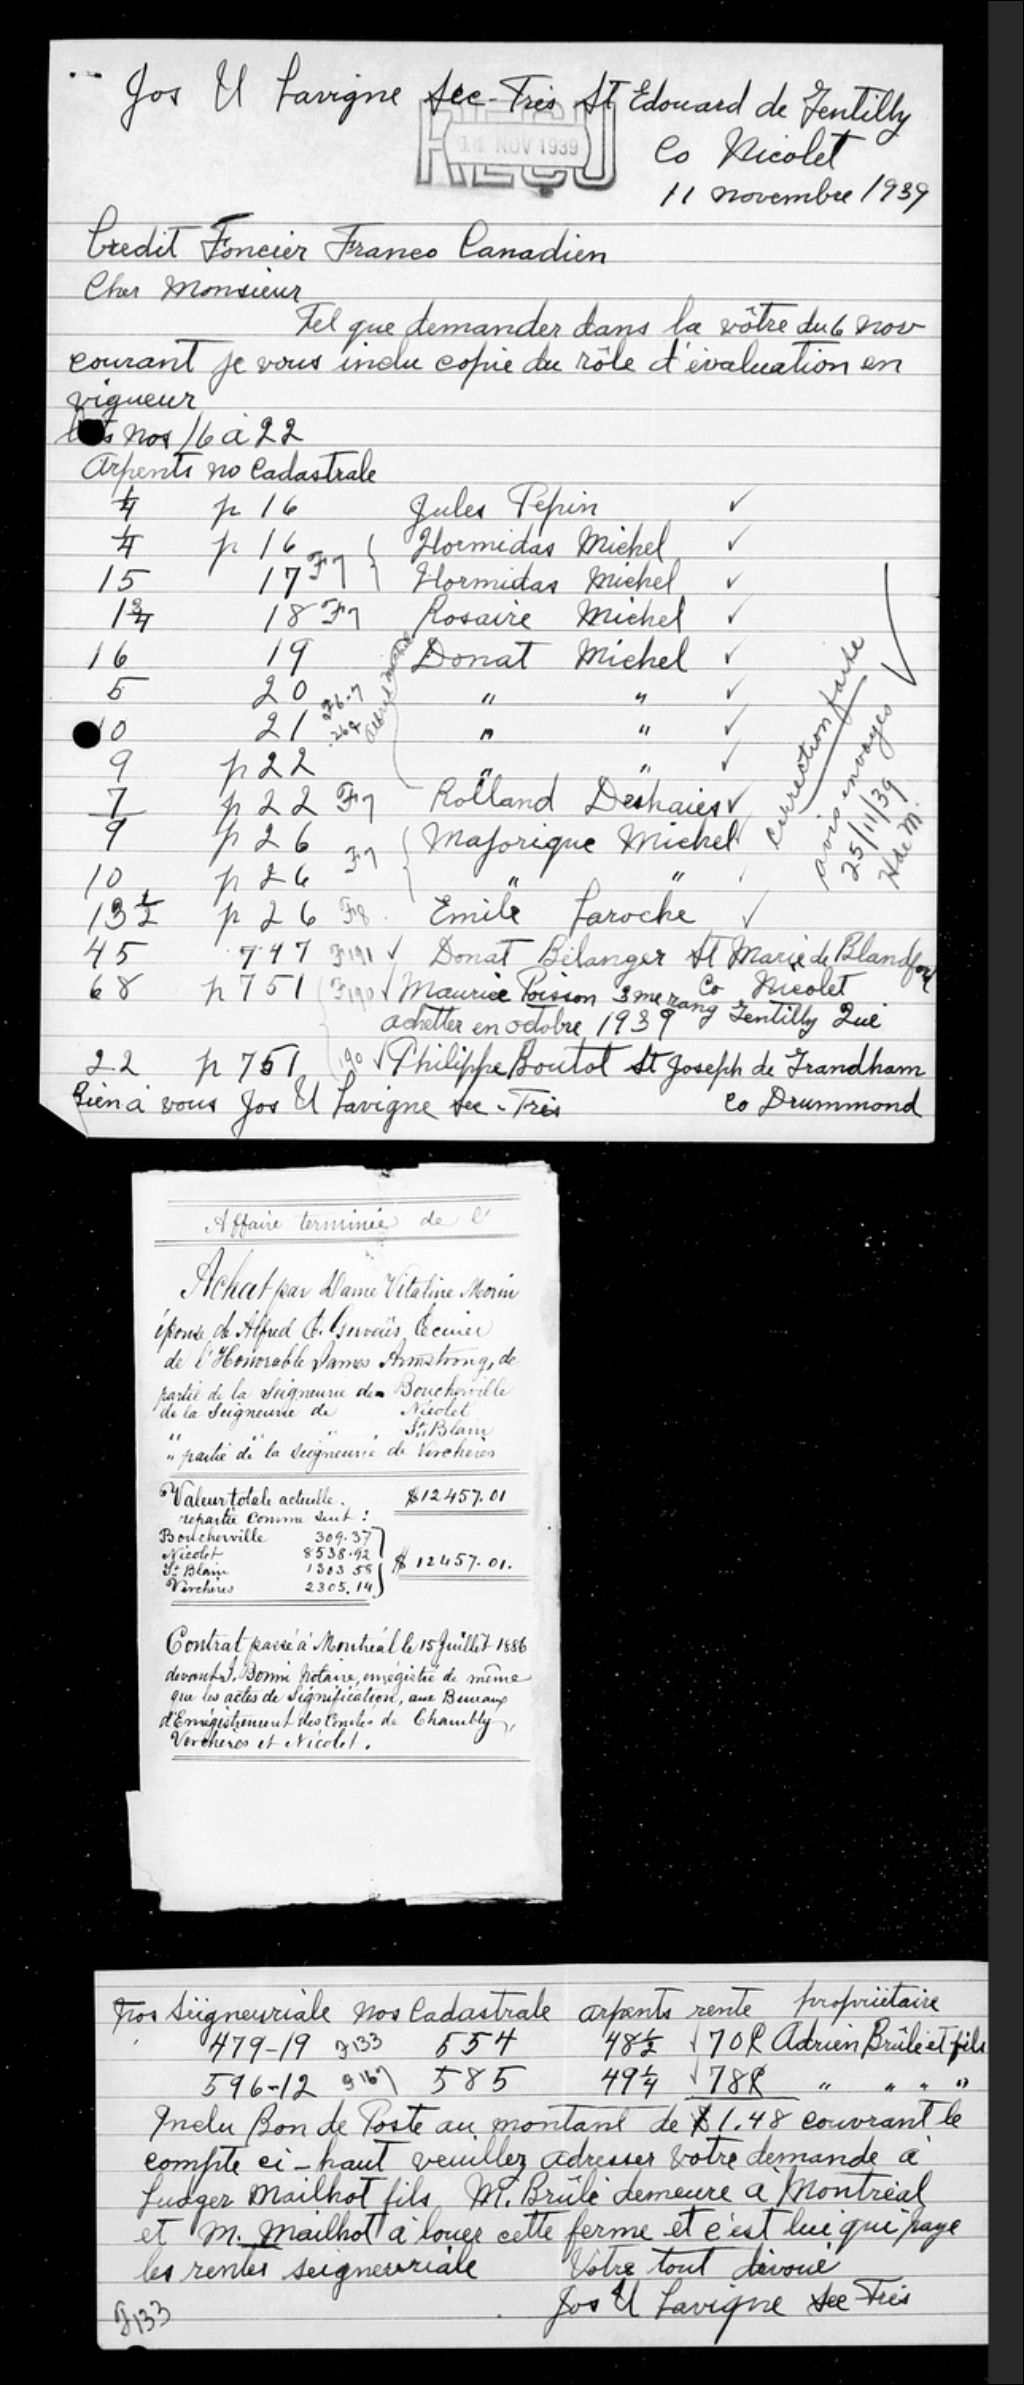 Jos U Lavigne Sec-Trés St Edouard de Gentilly
REÇU
14 NOV 1939
Co Nicolet
11 novembre 1939
Credit Foncier Franco Canadien
Cher Monsieur
Tel que demander dans la vôtre du 6 nov
courant je vous inclu copie du rôle d'évaluation en
vigueur
nos 16 à 22
Arpents no Cadastrale
1/4 p 16 Jules Pepin ✓
1/4 p 16 Hormidas Michel ✓
15 17 F7 Hormidas Michel ✓
1 3/4 18 F7 Rosaire Michel ✓
16 19 Donat Michel ✓
5 20 " " ✓
10 21 " " ✓
9 p 22 " " ✓
7 p 22 F7 Rolland Deshaies ✓
9 p 26 F7 Majorique Michel
10 p 26 " "
13 1/2 p 26 F8 Emile Laroche ✓
45 747 F191 ✓ Donat Bélanger St Marie de Blandford
Co Nicolet
68 p 751 F190 ✓ Maurice Poisson 3me rang Gentilly Qué
achetter en octobre 1939
22 p 751 190 ✓ Philippe Boutot St Joseph de Grandham
Bien à vous Jos U Lavigne Sec-Trés Co Drummond
correction faite
avis envoyés
25/11/39
HdeM.
Affaire terminée de l'
Achat par Dame Vitaline Morin
épouse de Alfred E. Gervais, Ecuier
de l'Honorable James Armstrong, de
partie de la Seigneurie de Boucherville
de la Seigneurie de Nicolet
" " " St Blain
" partie de la Seigneurie de Verchères
Valeur totale actuelle. $12457.01
repartie comme suit :
Boucherville 309.37
Nicolet 8538.92
St Blain 1303 58
Verchères 2305.14
$ 12457.01.
Contrat passé à Montréal le 15 Juillet 1886
devant Bonin Notaire, enrégistré de même
que les actes de Signification, aux Bureaux
d'Enregistrement des Comtés de Chambly,
Verchères et Nicolet.
Nos Seigneuriale Nos Cadastrale arpents rente propriétaire
479-19 F133 554 48 1/2 ✓ 70 Adrien Brûlé et fils
596-12 F167 585 49 1/4 ✓ 78 " " " "
Inclu Bon de Poste au montant de $1.48 couvrant le
compte ci-haut veuillez adresser votre demande à
Ludger Mailhot fils M. Brûlé demeure à Montréal
et M. Mailhot à louer cette ferme et c'est lui qui paye
les rentes seigneuriale Votre tout dévoué
Jos U Lavigne Sec-Trés
F133